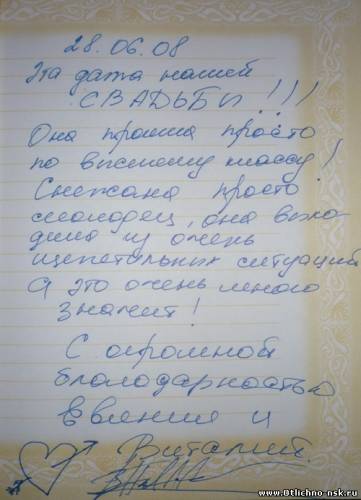 28.06.08
Эта дата нашей
СВАДЬБЫ!!!
Она прошла просто
по высшему классу!
Снежана просто
молодец, она выхо-
дила из очень
щепетильных ситуаций
А это очень много
значит!
С огромной
благодарностью
и
Виталий.
www.Otlichno-nsk.ru